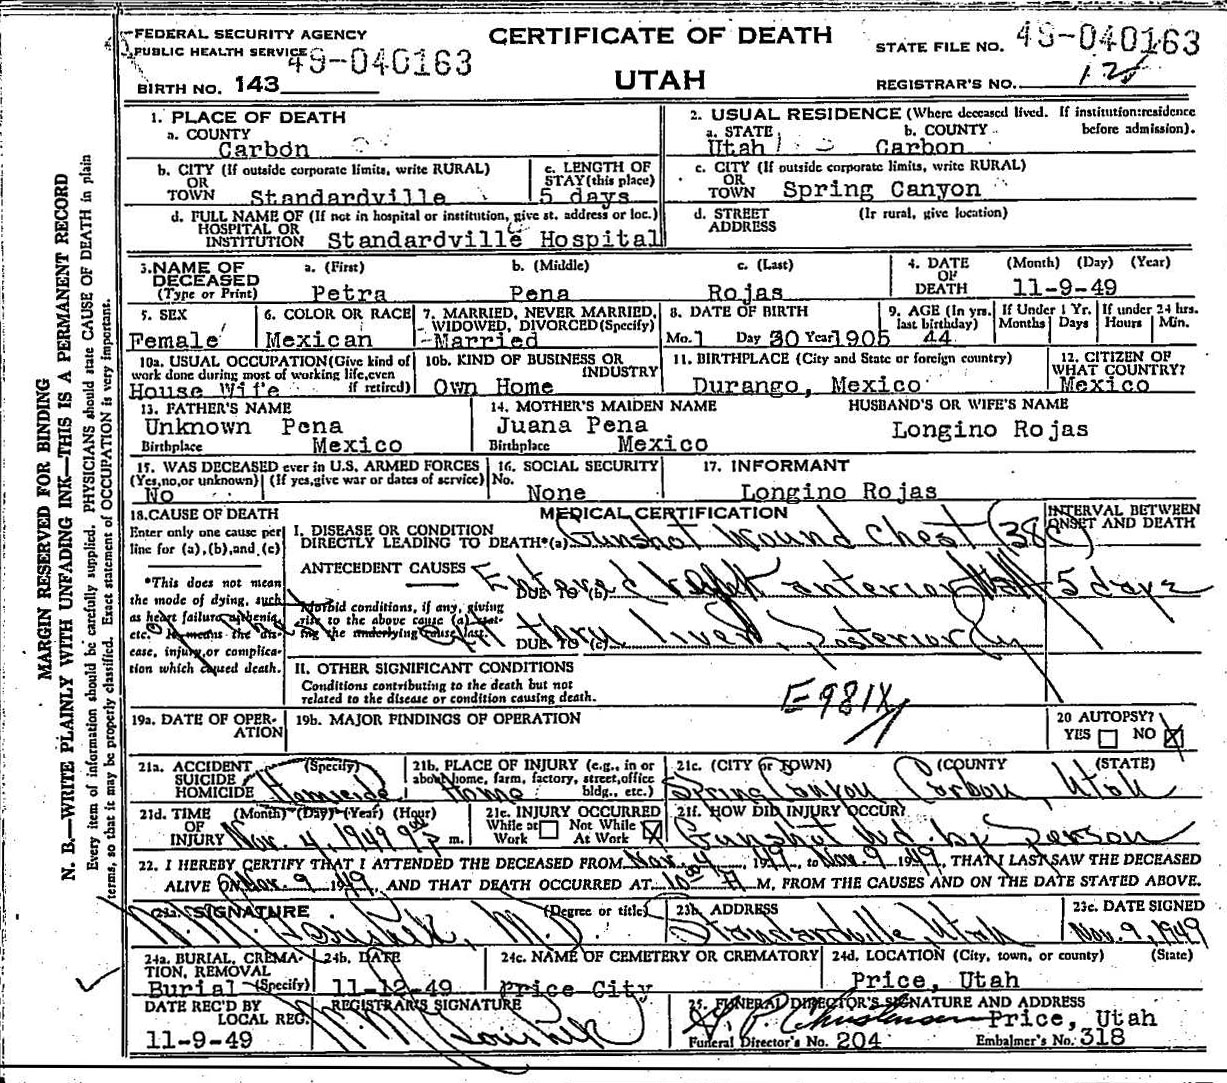 FEDERAL SECURITY AGENCY
PUBLIC HEALTH SERVICE 49-040163
CERTIFICATE OF DEATH
STATE FILE NO. 49-040163
BIRTH NO. 143
UTAH
REGISTRAR'S NO.
1. PLACE OF DEATH
a. COUNTY
Carbon
2. USUAL RESIDENCE (Where deceased lived. If institution:residence before admission).
a. STATE b. COUNTY
Utah Carbon
b. CITY (If outside corporate limits, write RURAL)
OR
TOWN Standardville
c. LENGTH OF
STAY (this place)
5 days
c. CITY (If outside corporate limits, write RURAL)
OR
TOWN Spring Canyon
d. FULL NAME OF (If not in hospital or institution, give st. address or loc.)
HOSPITAL OR
INSTITUTION Standardville Hospital
d. STREET (If rural, give location)
ADDRESS
3. NAME OF DECEASED
(Type or Print)
a. (First) b. (Middle) c. (Last)
Petra Pena Rojas
4. DATE OF DEATH (Month) (Day) (Year)
11-9-49
5. SEX
Female
6. COLOR OR RACE
Mexican
7. MARRIED, NEVER MARRIED,
WIDOWED, DIVORCED (Specify)
Married
8. DATE OF BIRTH
Mo. 1 Day 30 Year 1905
9. AGE (In yrs. last birthday)
44
If Under 1 Yr. If under 24 hrs.
Months Days Hours Min.
10a. USUAL OCCUPATION (Give kind of
work done during most of working life, even
if retired)
House Wife
10b. KIND OF BUSINESS OR
INDUSTRY
Own Home
11. BIRTHPLACE (City and State or foreign country)
Durango, Mexico
12. CITIZEN OF
WHAT COUNTRY?
Mexico
13. FATHER'S NAME
Unknown Pena
Birthplace Mexico
14. MOTHER'S MAIDEN NAME
Juana Pena
Birthplace Mexico
HUSBAND'S OR WIFE'S NAME
Longino Rojas
15. WAS DECEASED ever in U.S. ARMED FORCES
(Yes, no, or unknown) (If yes, give war or dates of service)
No
16. SOCIAL SECURITY
No.
None
17. INFORMANT
Longino Rojas
18. CAUSE OF DEATH
Enter only one cause per
line for (a), (b), and (c)
*This does not mean
the mode of dying, such
as heart failure, asthenia,
etc. It means the dis-
ease, injury, or complica-
tion which caused death.
MEDICAL CERTIFICATION
INTERVAL BETWEEN
ONSET AND DEATH
I. DISEASE OR CONDITION
DIRECTLY LEADING TO DEATH*(a) Gunshot Wound Chest (38
ANTECEDENT CAUSES
DUE TO (b) Entered Right anterior 5 days
Morbid conditions, if any, giving
rise to the above cause (a) stat-
ing the underlying cause last.
DUE TO (c) thru liver, Posteriorly
II. OTHER SIGNIFICANT CONDITIONS
Conditions contributing to the death but not
related to the disease or condition causing death.
E981X
19a. DATE OF OPER-
ATION
19b. MAJOR FINDINGS OF OPERATION
20 AUTOPSY?
YES NO
21a. ACCIDENT (Specify)
SUICIDE
HOMICIDE Homicide
21b. PLACE OF INJURY (e.g., in or
about home, farm, factory, street, office
bldg., etc.)
Home
21c. (CITY or TOWN) (COUNTY) (STATE)
Spring Canyon Carbon, Utah
21d. TIME (Month) (Day) (Year) (Hour)
OF
INJURY Nov. 4, 1949 m.
21e. INJURY OCCURRED
While at Work Not While At Work
21f. HOW DID INJURY OCCUR?
Gunshot wd. by Person
22. I HEREBY CERTIFY THAT I ATTENDED THE DECEASED FROM Nov. 4, 1949, to Nov. 9 1949, THAT I LAST SAW THE DECEASED
ALIVE ON Nov. 9 1949, AND THAT DEATH OCCURRED AT 10 A M, FROM THE CAUSES AND ON THE DATE STATED ABOVE.
23a. SIGNATURE (Degree or title)
M.D.
23b. ADDRESS
Standardville Utah
23c. DATE SIGNED
Nov. 9, 1949
24a. BURIAL, CREMA-
TION, REMOVAL
(Specify)
Burial
24b. DATE
11-12-49
24c. NAME OF CEMETERY OR CREMATORY
Price City
24d. LOCATION (City, town, or county) (State)
Price, Utah
DATE REC'D BY
LOCAL REG.
11-9-49
REGISTRAR'S SIGNATURE
25. FUNERAL DIRECTOR'S SIGNATURE AND ADDRESS
Christensen Price, Utah
Funeral Director's No. 204 Embalmer's No. 318
MARGIN RESERVED FOR BINDING
N. B.—WRITE PLAINLY WITH UNFADING INK—THIS IS A PERMANENT RECORD
Every item of information should be carefully supplied. PHYSICIANS should state CAUSE OF DEATH in plain
terms, so that it may be properly classified. Exact statement of OCCUPATION is very important.